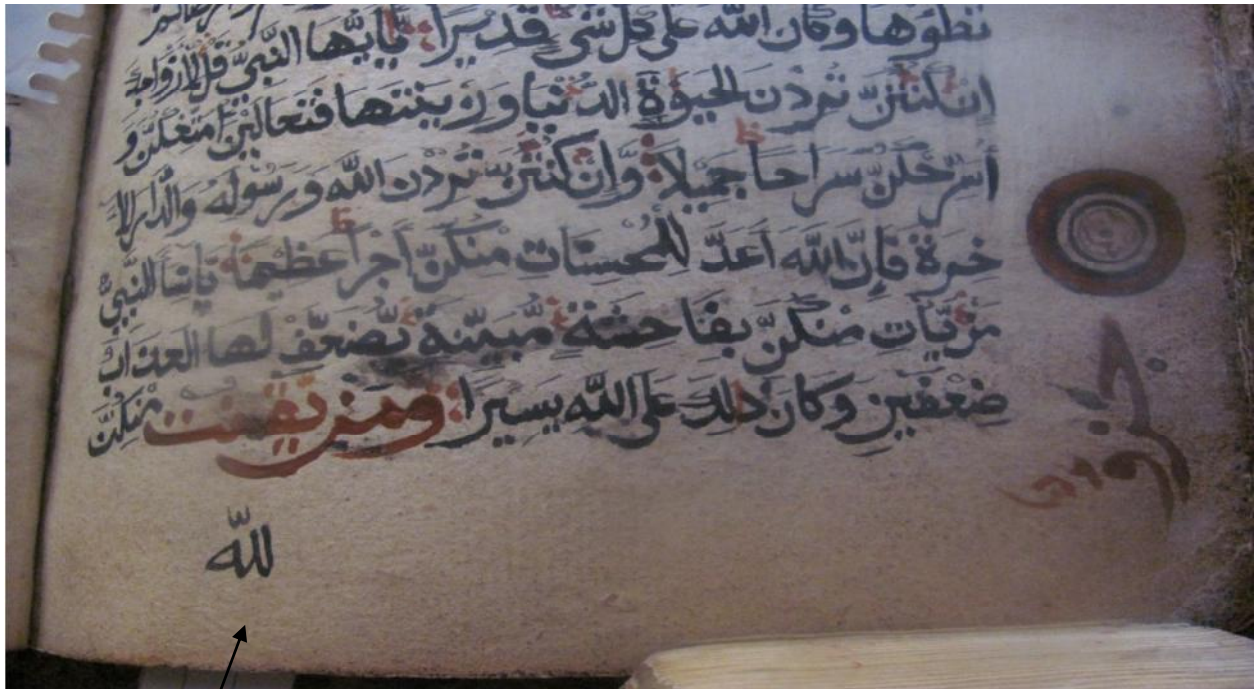 تَطَوُهَا وَكَانَ اللّٰهُ عَلَى كُلِّ شَىْءٍ قَدِيْرًا يٰاَيُّهَا النَّبِيُّ قُلْ لِاَزْوَاجِكَ
اِنْ كُنْتُنَّ تُرِدْنَ الْحَيٰوةَ الدُّنْيَا وَزِيْنَتَهَا فَتَعَالَيْنَ اُمَتِّعْكُنَّ وَ
اُسَرِّحْكُنَّ سَرَاحًا جَمِيْلًا وَّاِنْ كُنْتُنَّ تُرِدْنَ اللّٰهَ وَرَسُوْلَهُ وَالدَّارَ الْاٰ
خِرَةَ فَاِنَّ اللّٰهَ اَعَدَّ لِلْمُحْسِنَاتِ مِنْكُنَّ اَجْرًا عَظِيْمًا يَانِسَاَ النَّبِيِّ
مَنْ يَّاْتِ مِنْكُنَّ بِفَاحِشَةٍ مُّبَيِّنَةٍ يُّضٰعَفْ لَهَا الْعَذَابُ
ضِعْفَيْنِ وَكَانَ ذٰلِكَ عَلَى اللّٰهِ يَسِيْرًا وَمَنْ يَّقْنُتْ مِنْكُنَّ
لِلّٰه
جزو